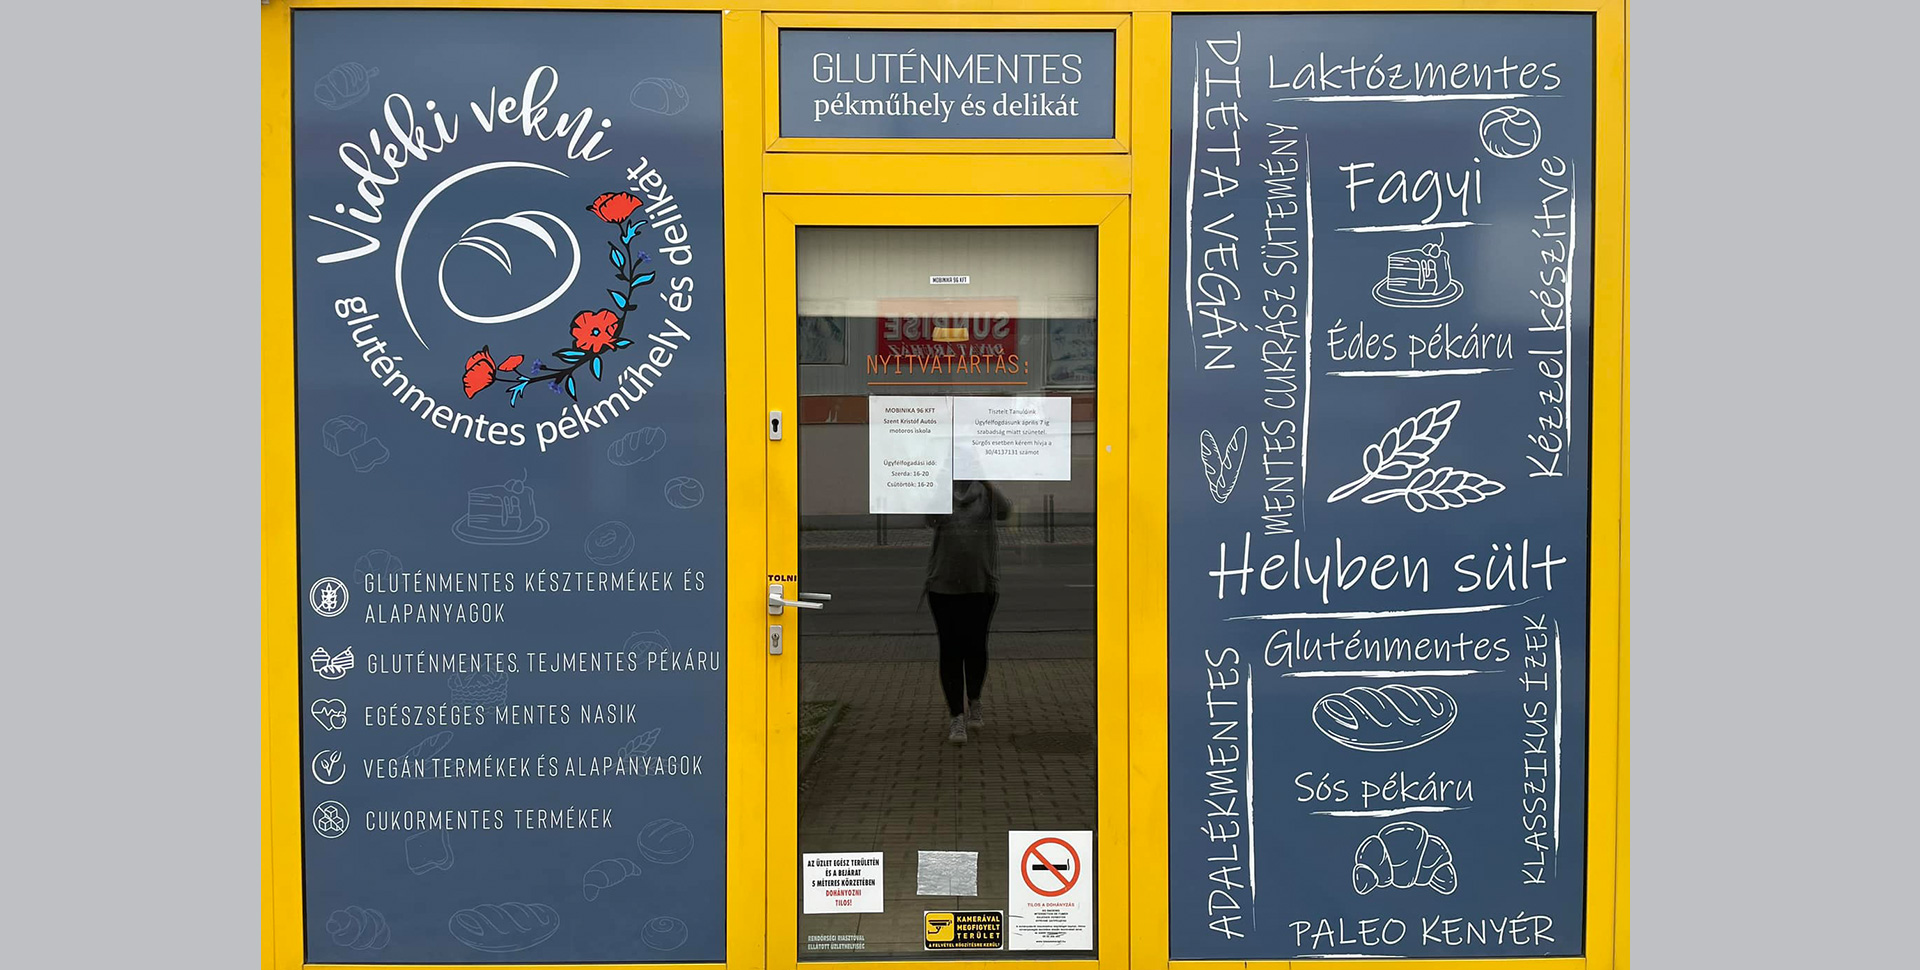 Vidéki vekni
gluténmentes pékműhely és delikát
GLUTÉNMENTES KÉSZTERMÉKEK ÉS
ALAPANYAGOK
GLUTÉNMENTES, TEJMENTES PÉKÁRU
EGÉSZSÉGES MENTES NASIK
VEGÁN TERMÉKEK ÉS ALAPANYAGOK
CUKORMENTES TERMÉKEK
GLUTÉNMENTES
pékműhely és delikát
MOBINIKA 96 KFT
SUNRISE
DIVATÁRUHÁZ
NYITVATARTÁS:
MOBINIKA 96 KFT
Szent Kristóf Autós
motoros iskola
Ügyfélfogadási idő:
Szerda: 16-20
Csütörtök: 16-20
Tisztelt Tanulóink
Ügyfélfogadásunk április 7 ig
szabadság miatt szünetel.
Sürgős esetben kérem hívja a
30/4137131 számot
TOLNI
AZ ÜZLET EGÉSZ TERÜLETÉN
ÉS A BEJÁRAT
5 MÉTERES KÖRZETÉBEN
DOHÁNYOZNI
TILOS!
RENDŐRSÉGI RIASZTÓVAL
ELLÁTOTT ÜZLETHELYISÉG
KAMERÁVAL
MEGFIGYELT
TERÜLET
A FELVÉTEL RÖGZÍTÉSRE KERÜL!
TILOS A DOHÁNYZÁS
DIÉTA VEGÁN
Laktózmentes
MENTES CUKRÁSZ SÜTEMÉNY
Fagyi
Kézzel készítve
Édes pékáru
Helyben sült
Gluténmentes
ADALÉKMENTES
KLASSZIKUS ÍZEK
Sós pékáru
PALEO KENYÉR